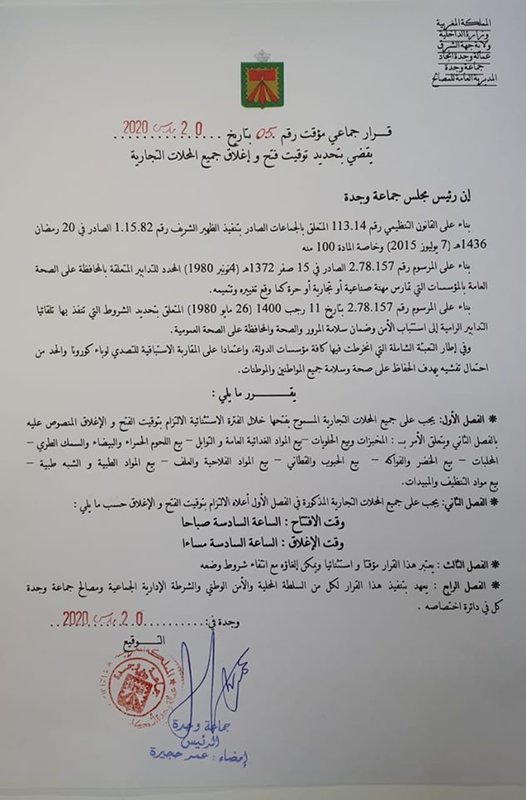 المملكة المغربية
وزارة الداخلية
ولاية جهة الشرق
عمالة وجدة أنجاد
جماعة وجدة
المديرية العامة للمصالح
قـرار جماعي مؤقت رقم 05 بتاريخ 20 مارس 2020
يقضي بتحديد توقيت فتح و إغلاق جميع المحلات التجارية
إن رئيس مجلس جماعة وجدة
بناء على القانون التنظيمي رقم 113.14 المتعلق بالجماعات الصادر بتنفيذ الظهير الشريف رقم 1.15.82 الصادر في 20 رمضان
1436هـ (7 يوليوز 2015) وخاصة المادة 100 منه
بناء على المرسوم رقم 2.78.157 الصادر في 15 صفر 1372هـ (4نونبر 1980) المحدد للتدابير المتعلقة بالمحافظة على الصحة
العامة بالمؤسسات التي تمارس مهنة صناعية أو تجارية أو حرة كما وقع تغييره وتتميمه.
بناء على المرسوم رقم 2.78.157 بتاريخ 11 رجب 1400 (26 مايو 1980) المتعلق بتحديد الشروط التي تنفذ بها تلقائيا
التدابير الرامية إلى استتباب الأمن وضمان سلامة المرور والصحة والمحافظة على الصحة العمومية.
وفي إطار التعبئة الشاملة التي انخرطت فيها كافة مؤسسات الدولة، واعتمادا على المقاربة الاستباقية للتصدي لوباء كورونا والحد من
احتمال تفشيه بهدف الحفاظ على صحة وسلامة جميع المواطنين والمواطنات.
يقـــــرر ما يلي :
* الفصل الأول: يجب على جميع المحلات التجارية المسموح بفتحها خلال الفترة الاستثنائية الالتزام بتوقيت الفتح و الإغلاق المنصوص عليه
بالفصل الثاني ويتعلق الأمر بـ : المخبزات وبيع الحلويات –بيع المواد الغذائية العامة و التوابل – بيع اللحوم الحمراء والبيضاء والسمك الطري –
المحلبات – بيع الخضر والفواكه – بيع الحبوب والقطاني – بيع المواد الفلاحية والعلف – بيع المواد الطبية و الشبه طبية –
بيع مواد التنظيف والمبيدات.
* الفصل الثاني: يجب على جميع المحلات التجارية المذكورة في الفصل الأول أعلاه الالتزام بتوقيت الفتح و الإغلاق حسب ما يلي :
وقت الافتتاح : الساعة السادسة صباحا
وقت الإغلاق : الساعة السادسة مساءا
* الفصل الثالث : يعتبر هذا القرار مؤقتا و استثنائيا ويمكن إلغاؤه مع انتفاء شروط وضعه
* الفصل الرابع : يعهد بتنفيذ هذا القرار لكل من السلطة المحلية والأمن الوطني والشرطة الإدارية الجماعية ومصالح جماعة وجدة
كل في دائرة اختصاصه .
وجدة في: 20 مارس 2020
التـــوقيع
جماعة وجدة
الرئيس
إمضاء : عمر حجيرة